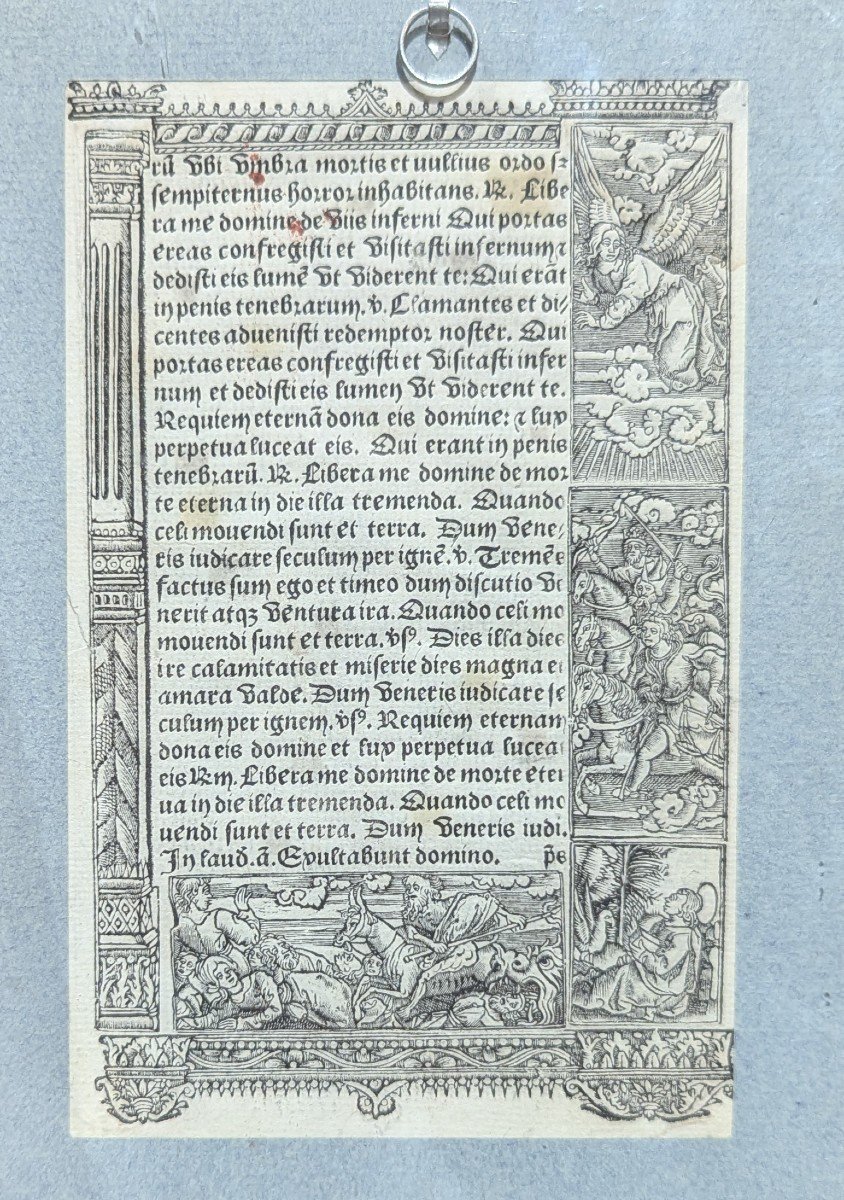 rū vbi vmbra mortis et nullius ordo sꝫ
sempiternus horror inhabitans. ℟. Libe
ra me domine de viis inferni Qui portas
ereas confregisti et visitasti infernum ⁊
dedisti eis lumē vt viderent te: Qui erāt
in penis tenebrarum. ℣. Clamantes et di/
centes aduenisti redemptor noster. Qui
portas ereas confregisti et visitasti infer
num et dedisti eis lumen vt viderent te.
Requiem eternā dona eis domine: ⁊ lux
perpetua luceat eis. Qui erant in penis
tenebrarū. ℟. Libera me domine de mor
te eterna in die illa tremenda. Quando
celi mouendi sunt et terra. Dum vene/
ris iudicare seculum per ignē. ℣. Tremēs
factus sum ego et timeo dum discutio ve
nerit atqꝫ ventura ira. Quando celi mo
mouendi sunt et terra. ꝟsꝰ. Dies illa dies
ire calamitatis et miserie dies magna et
amara valde. Dum veneris iudicare se
culum per ignem. ꝟsꝰ. Requiem eternam
dona eis domine et lux perpetua luceat
eis ℟m. Libera me domine de morte eter
na in die illa tremenda. Quando celi mo
uendi sunt et terra. Dum veneris iudi.
In laud̄. ā. Exultabunt domino. p̄s